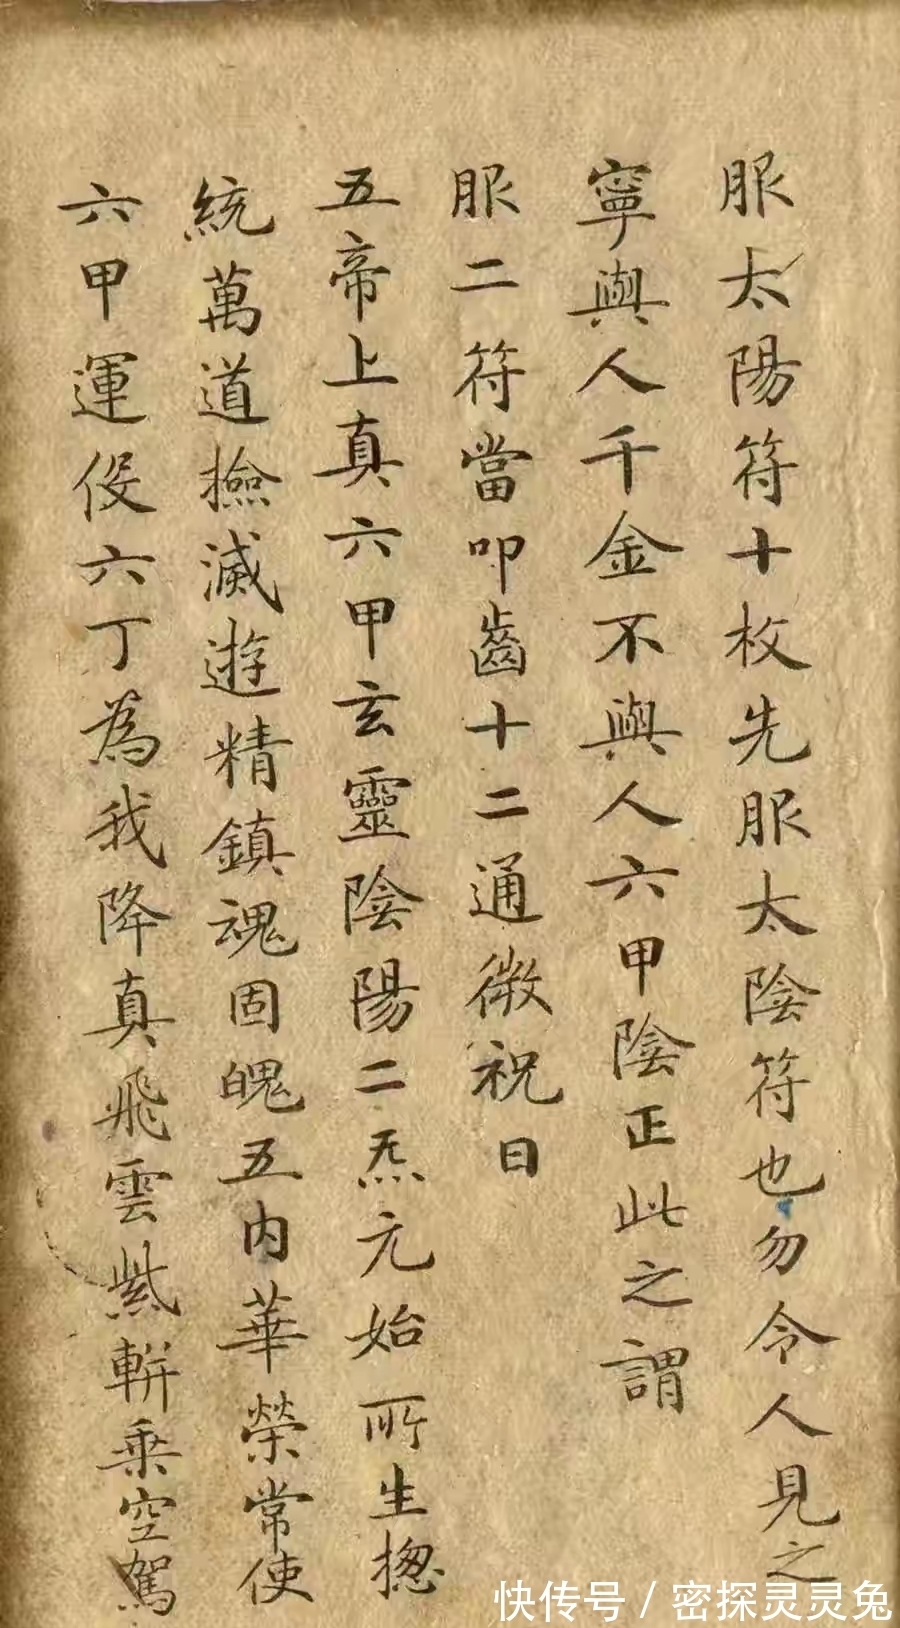 服太陽符十枚先服太陰符也勿令人見之
寧與人千金不與人六甲陰正此之謂
服二符當叩齒十二通微祝曰
五帝上真六甲玄靈陰陽二炁元始所生揔
統萬道撿滅遊精鎮魂固魄五内華榮常使
六甲運役六丁為我降真飛雲紫軿乗空駕
快传号 / 密探灵灵兔